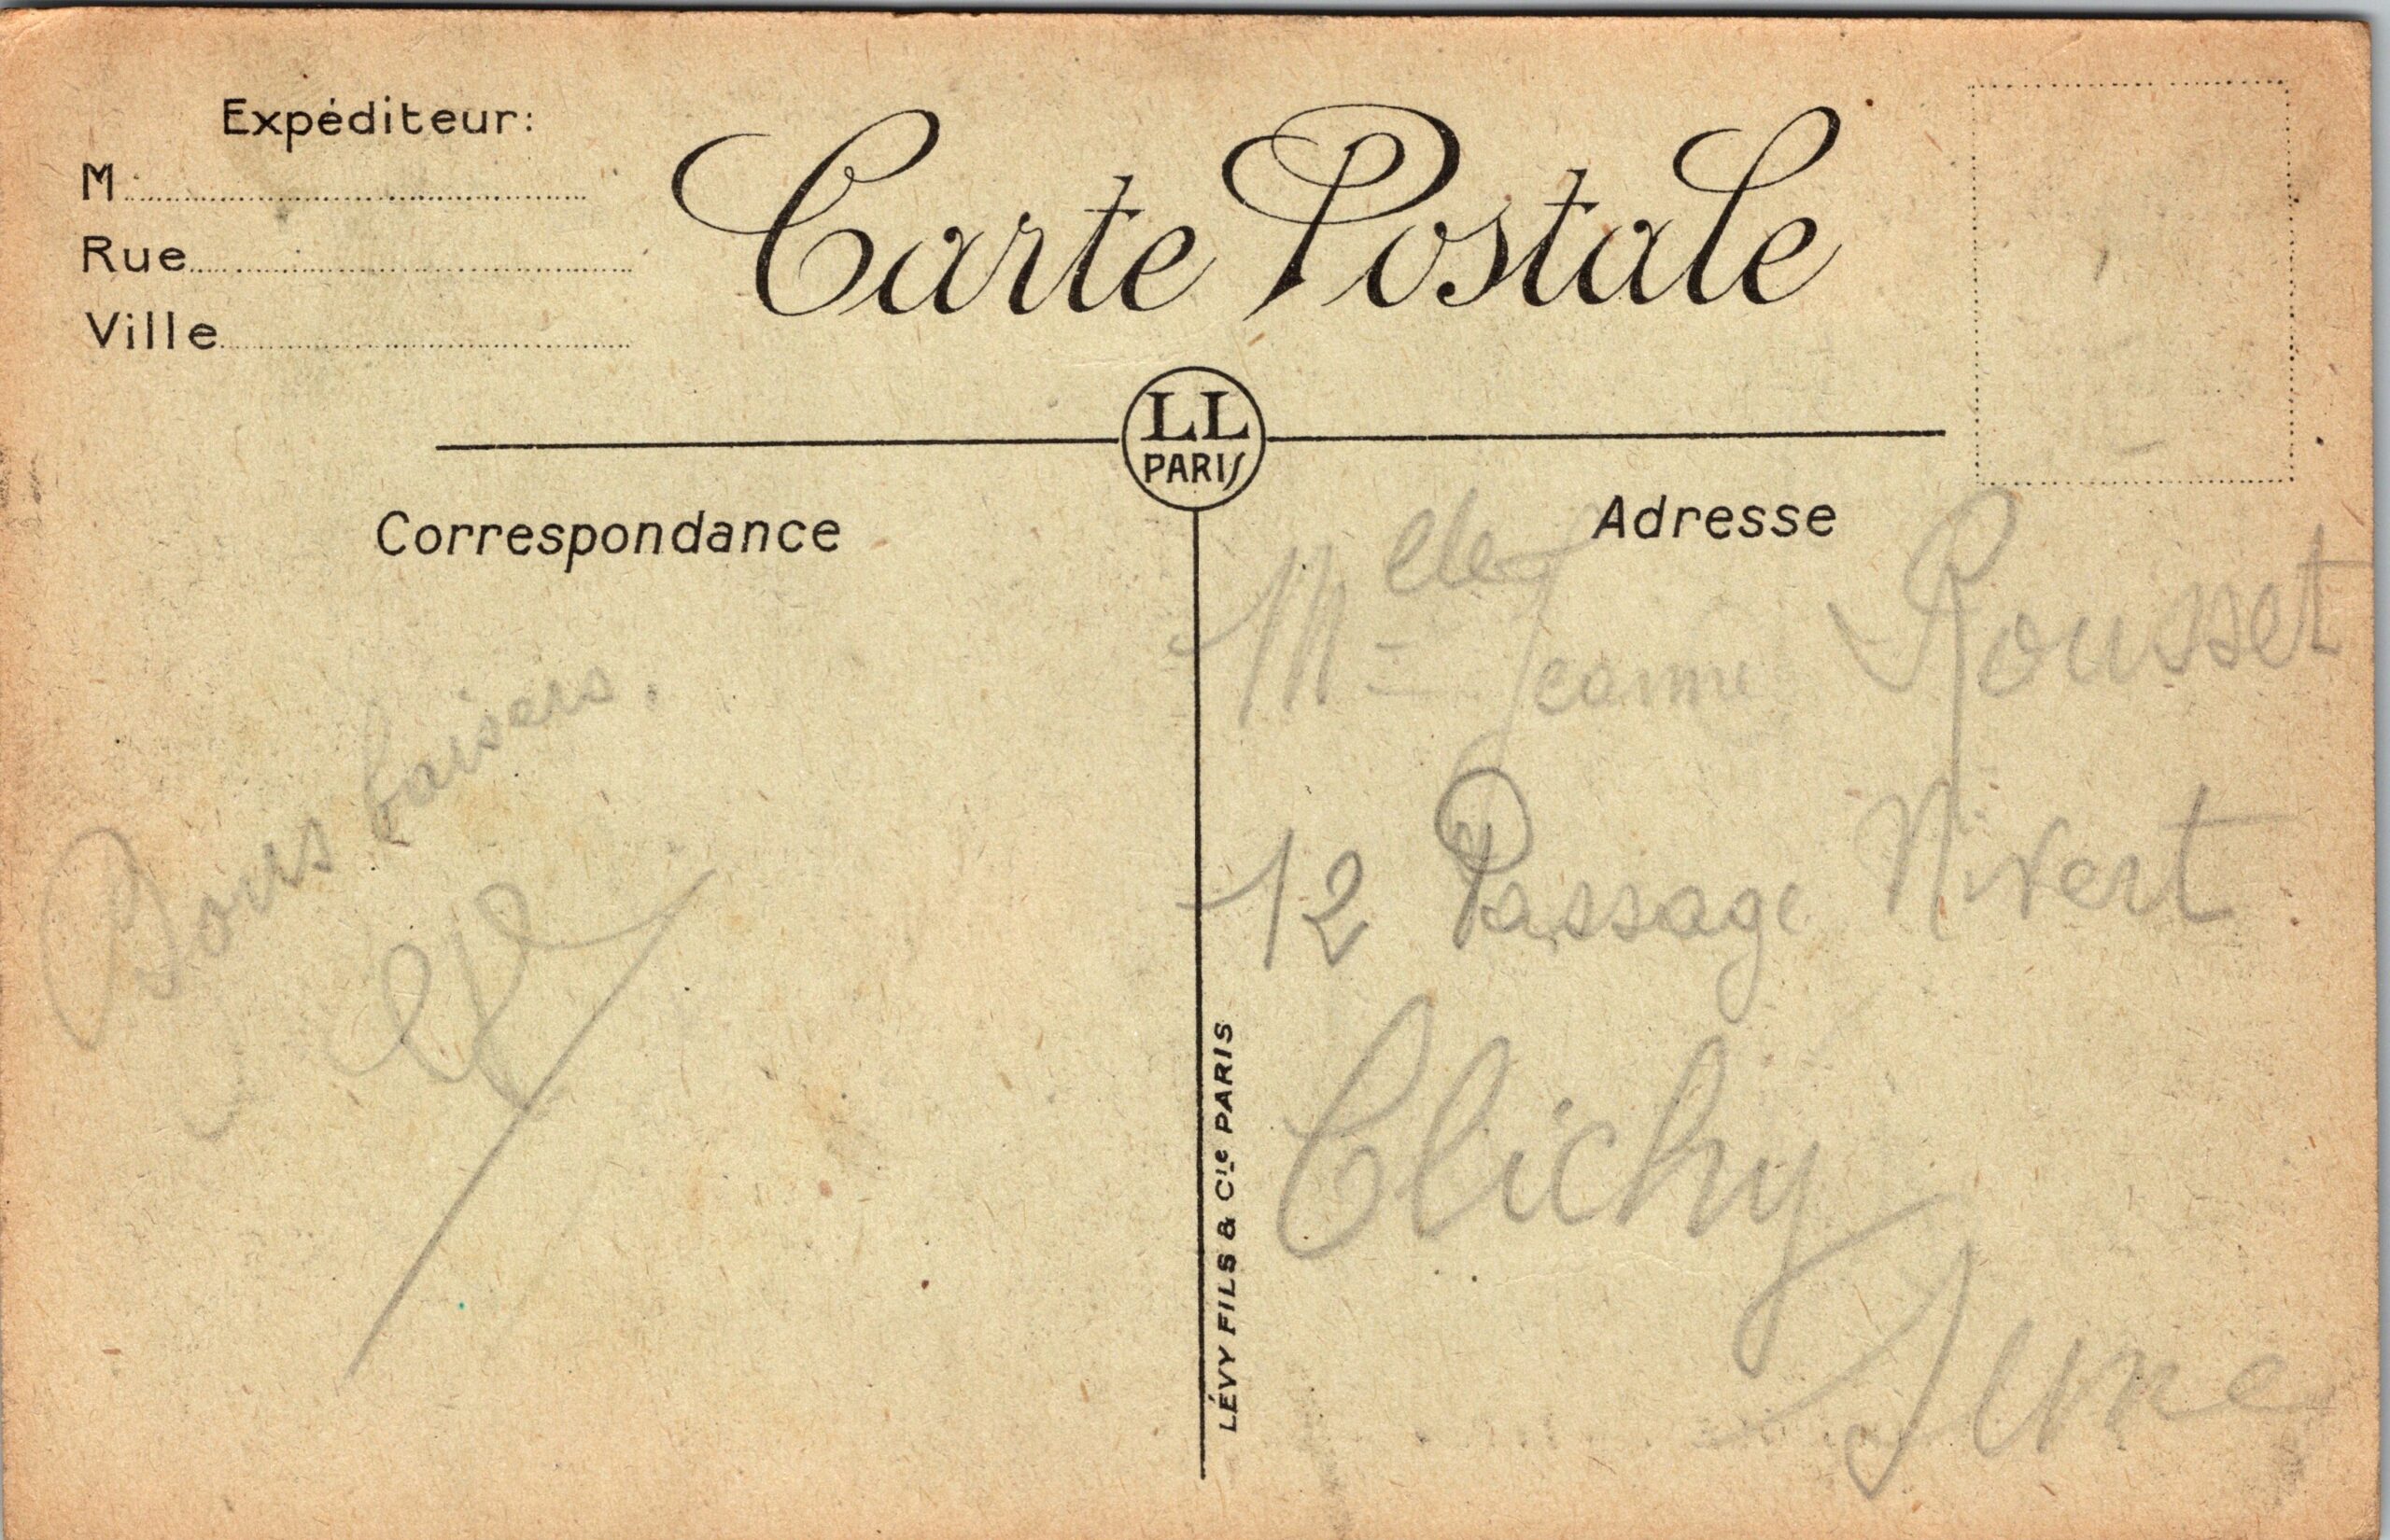 Expéditeur:
M
Rue
Ville
Carte Postale
LL
PARIS
Correspondance
Adresse
Bons baisers.
Melle Jeanne Rousset
12 Passage Nivert
Clichy
Seine
LÉVY FILS & Cie PARIS